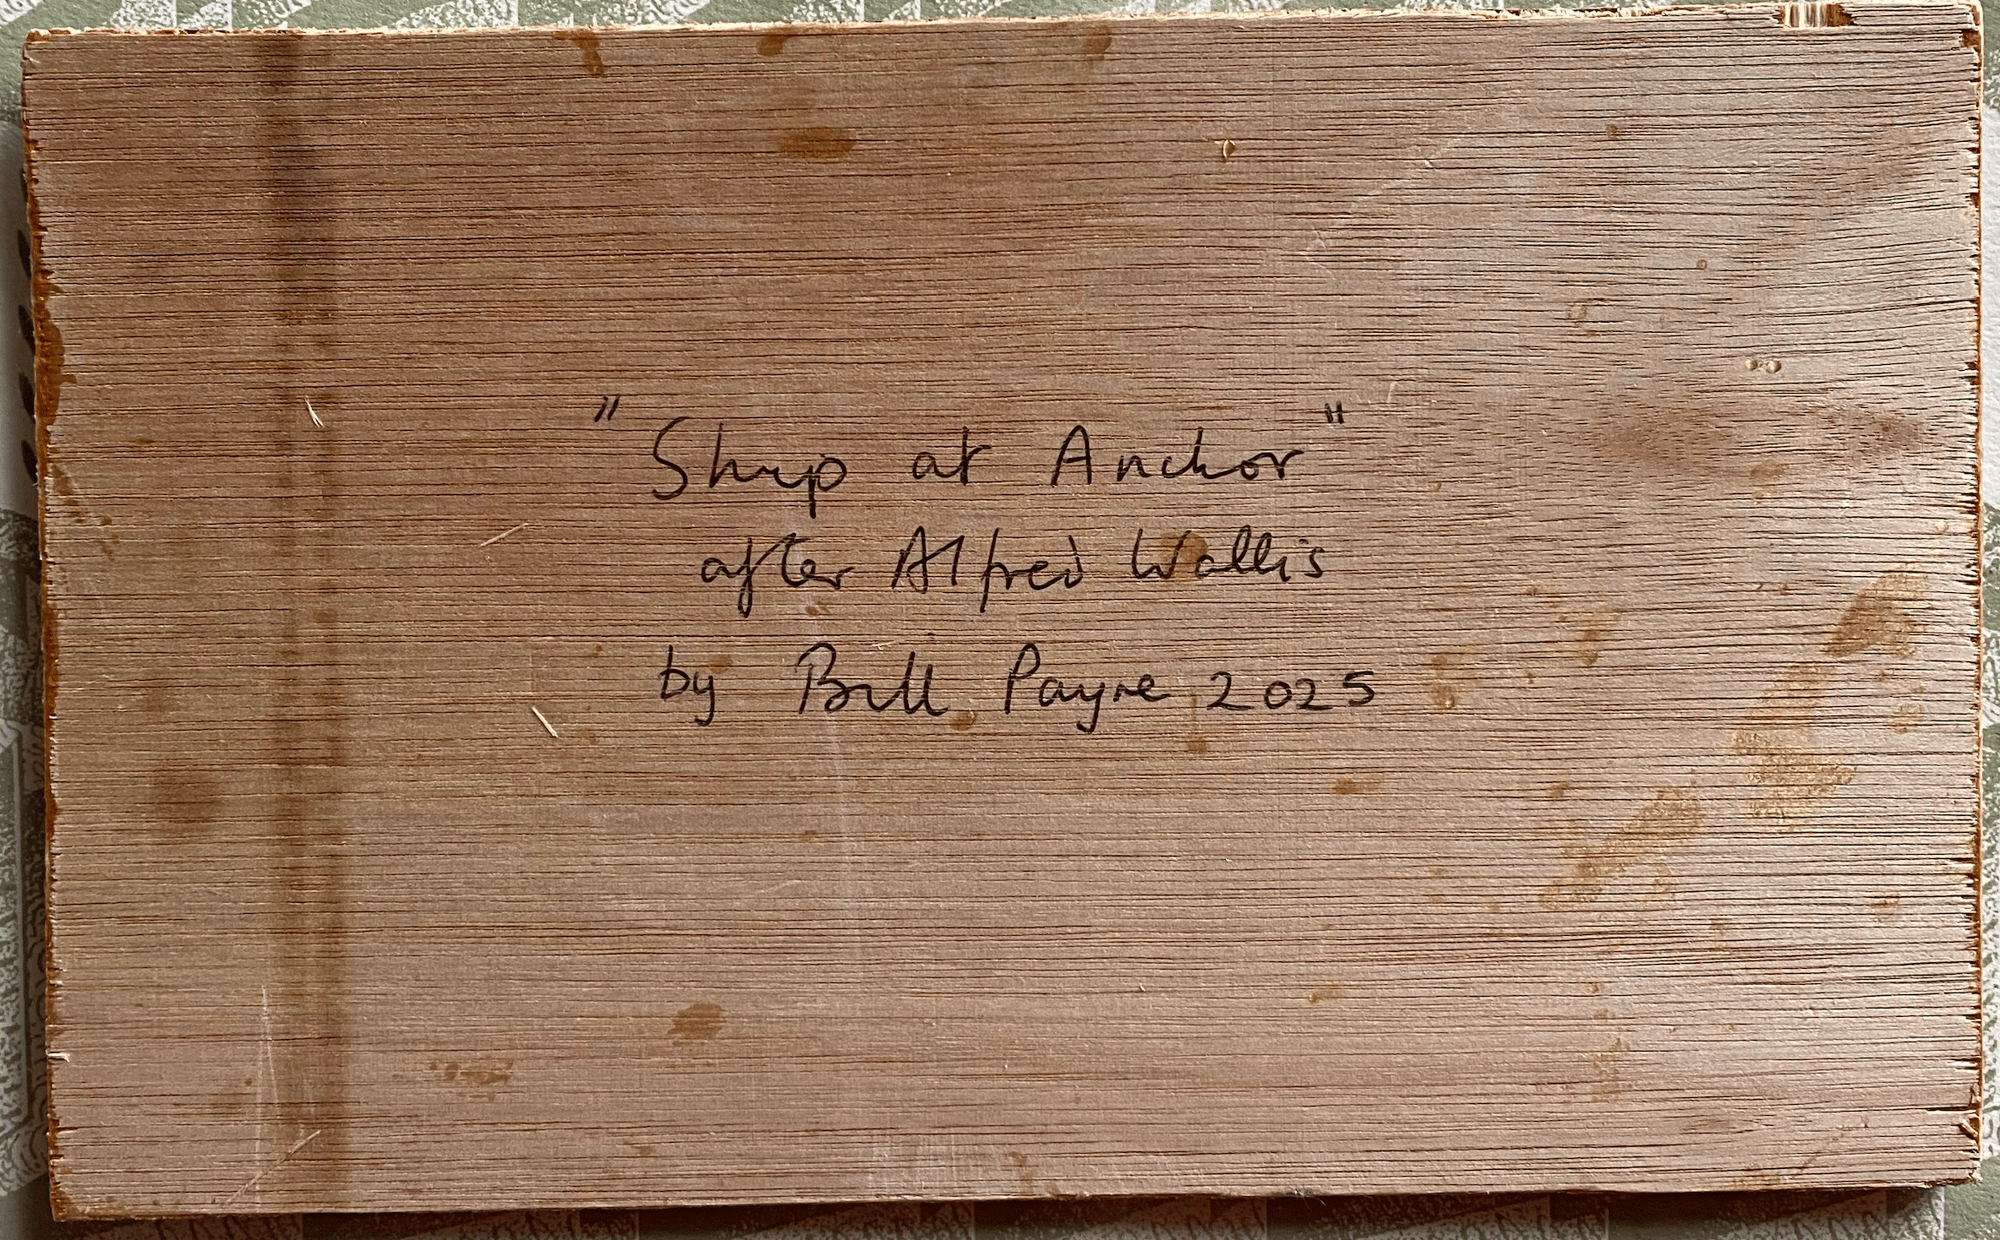 "Ship at Anchor"
after Alfred Wallis
by Bill Payne 2025